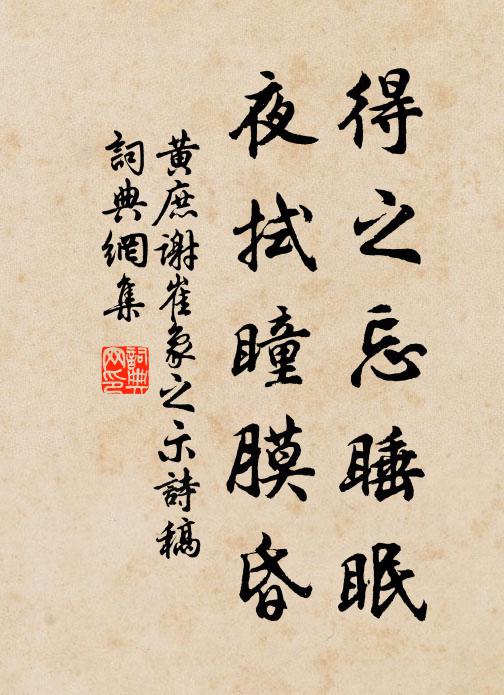 得之忘睡眠
夜拭瞳膜昏
黄庶谢崔象之示詩稿
詞典網集
詞典網印